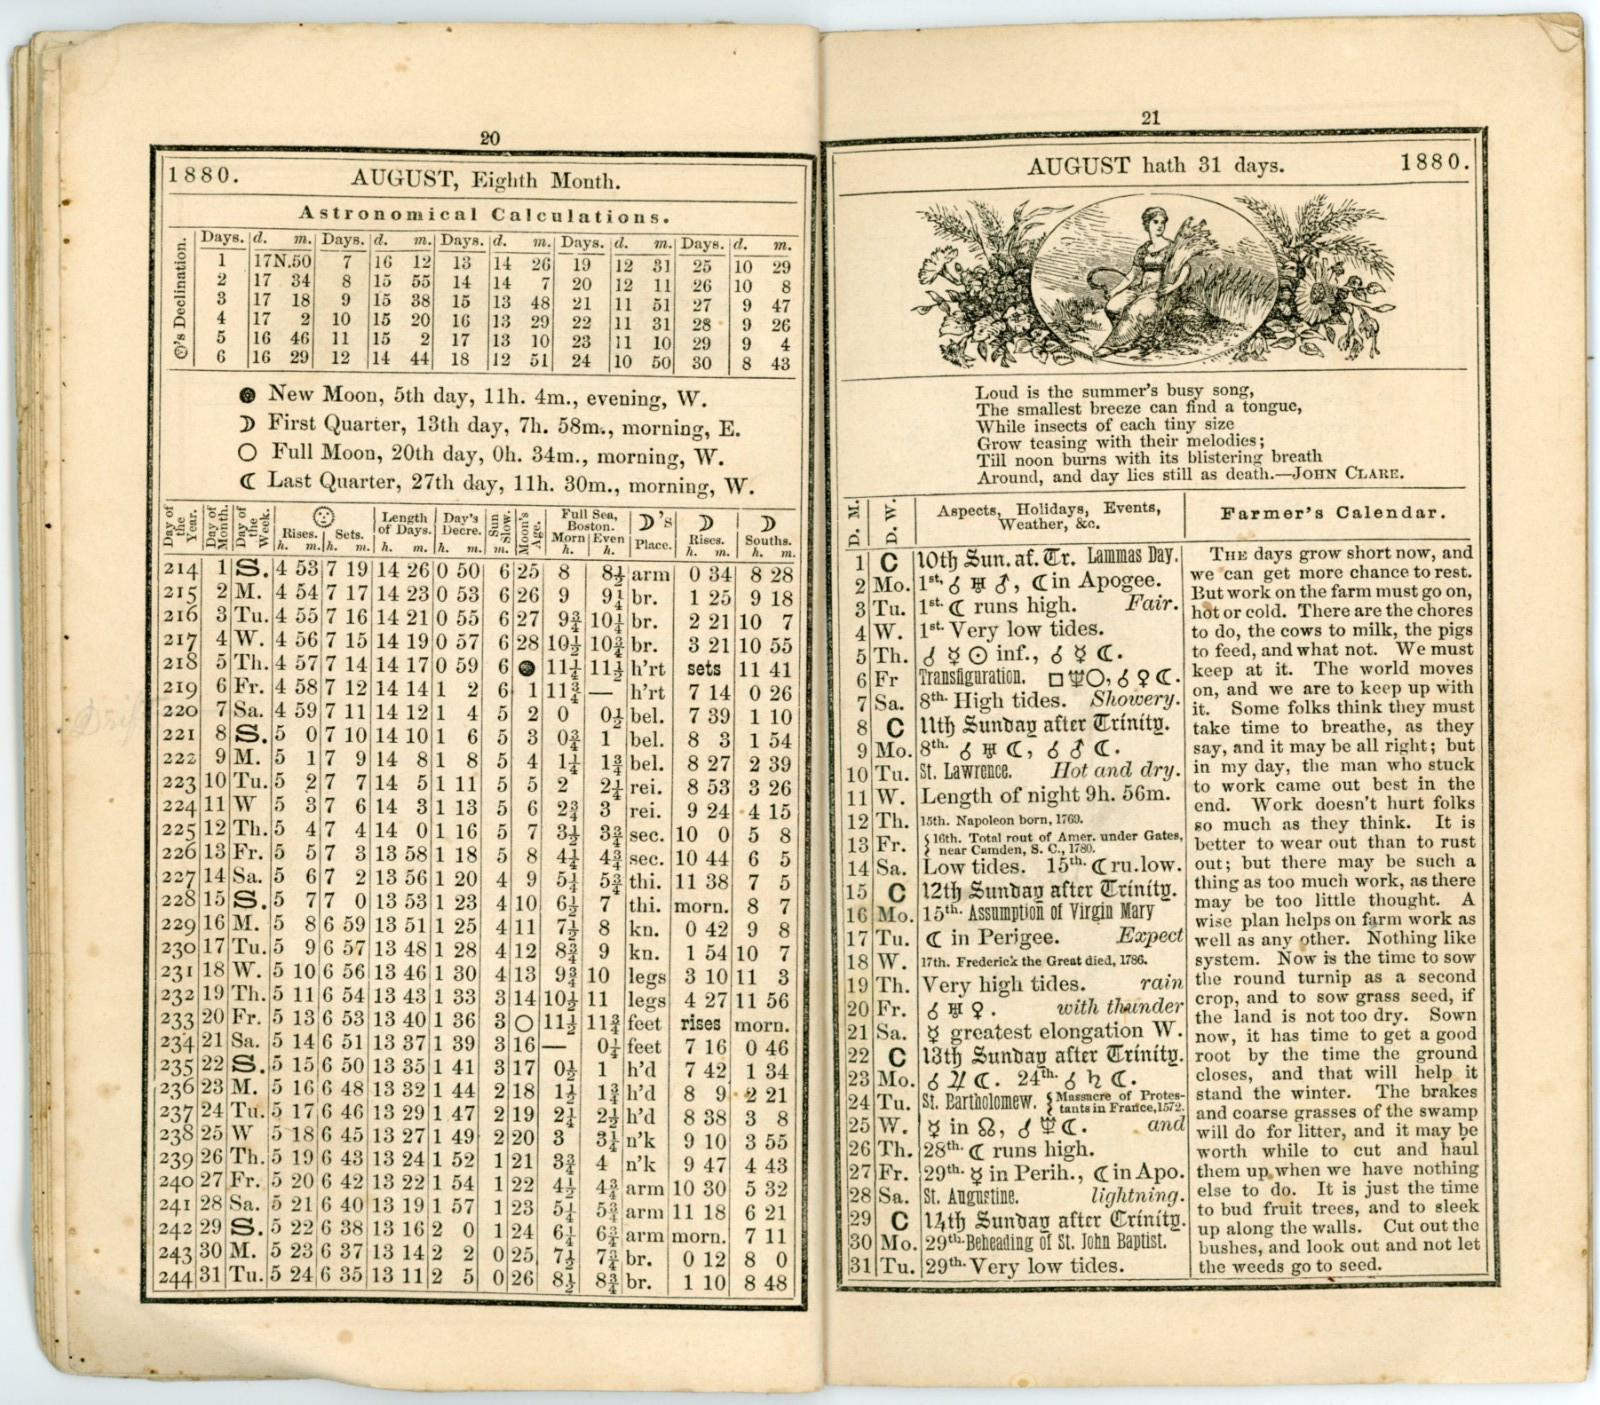 20
1880. AUGUST, Eighth Month.
Astronomical Calculations.
☉'s Declination.
Days. d. m. Days. d. m. Days. d. m. Days. d. m. Days. d. m.
1 17N.50 7 16 12 13 14 26 19 12 31 25 10 29
2 17 34 8 15 55 14 14 7 20 12 11 26 10 8
3 17 18 9 15 38 15 13 48 21 11 51 27 9 47
4 17 2 10 15 20 16 13 29 22 11 31 28 9 26
5 16 46 11 15 2 17 13 10 23 11 10 29 9 4
6 16 29 12 14 44 18 12 51 24 10 50 30 8 43
● New Moon, 5th day, 11h. 4m., evening, W.
☽ First Quarter, 13th day, 7h. 58m., morning, E.
○ Full Moon, 20th day, 0h. 34m., morning, W.
☾ Last Quarter, 27th day, 11h. 30m., morning, W.
Day of the Year. Day of Month. Day of the Week. Rises. h. m. Sets. h. m. Length of Days. h. m. Day's Decre. h. m. Sun Slow. m. Moon's Age. Full Sea, Boston. Morn h. Even h. ☽'s Place. ☽ Rises. h. m. ☽ Souths. h. m.
214 1 S. 4 53 7 19 14 26 0 50 6 25 8 8½ arm 0 34 8 28
215 2 M. 4 54 7 17 14 23 0 53 6 26 9 9¼ br. 1 25 9 18
216 3 Tu. 4 55 7 16 14 21 0 55 6 27 9¾ 10¼ br. 2 21 10 7
217 4 W. 4 56 7 15 14 19 0 57 6 28 10½ 10¾ br. 3 21 10 55
218 5 Th. 4 57 7 14 14 17 0 59 6 ● 11¼ 11½ h'rt sets 11 41
219 6 Fr. 4 58 7 12 14 14 1 2 6 1 11¾ — h'rt 7 14 0 26
220 7 Sa. 4 59 7 11 14 12 1 4 5 2 0 0½ bel. 7 39 1 10
221 8 S. 5 0 7 10 14 10 1 6 5 3 0¾ 1 bel. 8 3 1 54
222 9 M. 5 1 7 9 14 8 1 8 5 4 1¼ 1¾ bel. 8 27 2 39
223 10 Tu. 5 2 7 7 14 5 1 11 5 5 2 2¼ rei. 8 53 3 26
224 11 W 5 3 7 6 14 3 1 13 5 6 2¾ 3 rei. 9 24 4 15
225 12 Th. 5 4 7 4 14 0 1 16 5 7 3½ 3¾ sec. 10 0 5 8
226 13 Fr. 5 5 7 3 13 58 1 18 5 8 4¼ 4¾ sec. 10 44 6 5
227 14 Sa. 5 6 7 2 13 56 1 20 4 9 5¼ 5¾ thi. 11 38 7 5
228 15 S. 5 7 7 0 13 53 1 23 4 10 6½ 7 thi. morn. 8 7
229 16 M. 5 8 6 59 13 51 1 25 4 11 7½ 8 kn. 0 42 9 8
230 17 Tu. 5 9 6 57 13 48 1 28 4 12 8¾ 9 kn. 1 54 10 7
231 18 W. 5 10 6 56 13 46 1 30 4 13 9¾ 10 legs 3 10 11 3
232 19 Th. 5 11 6 54 13 43 1 33 3 14 10½ 11 legs 4 27 11 56
233 20 Fr. 5 13 6 53 13 40 1 36 3 ○ 11½ 11¾ feet rises morn.
234 21 Sa. 5 14 6 51 13 37 1 39 3 16 — 0¼ feet 7 16 0 46
235 22 S. 5 15 6 50 13 35 1 41 3 17 0½ 1 h'd 7 42 1 34
236 23 M. 5 16 6 48 13 32 1 44 2 18 1½ 1¾ h'd 8 9 2 21
237 24 Tu. 5 17 6 46 13 29 1 47 2 19 2¼ 2½ h'd 8 38 3 8
238 25 W 5 18 6 45 13 27 1 49 2 20 3 3¼ n'k 9 10 3 55
239 26 Th. 5 19 6 43 13 24 1 52 1 21 3¾ 4 n'k 9 47 4 43
240 27 Fr. 5 20 6 42 13 22 1 54 1 22 4½ 4¾ arm 10 30 5 32
241 28 Sa. 5 21 6 40 13 19 1 57 1 23 5¼ 5¾ arm 11 18 6 21
242 29 S. 5 22 6 38 13 16 2 0 1 24 6¼ 6¾ arm morn. 7 11
243 30 M. 5 23 6 37 13 14 2 2 0 25 7½ 7¾ br. 0 12 8 0
244 31 Tu. 5 24 6 35 13 11 2 5 0 26 8½ 8¾ br. 1 10 8 48
21
AUGUST hath 31 days. 1880.
Loud is the summer's busy song,
The smallest breeze can find a tongue,
While insects of each tiny size
Grow teasing with their melodies;
Till noon burns with its blistering breath
Around, and day lies still as death.—JOHN CLARE.
D. M. D. W. Aspects, Holidays, Events, Weather, &c.
1 C 10th Sun. af. Tr. Lammas Day.
2 Mo. 1st. ☌ ♅ ♂, ☾ in Apogee.
3 Tu. 1st. ☾ runs high. Fair.
4 W. 1st. Very low tides.
5 Th. ☌ ☿ ☉ inf., ☌ ☿ ☾.
6 Fr Transfiguration. □♆☉, ☌ ♀ ☾.
7 Sa. 8th. High tides. Showery.
8 C 11th Sunday after Trinity.
9 Mo. 8th. ☌ ♅ ☾, ☌ ♂ ☾.
10 Tu. St. Lawrence. Hot and dry.
11 W. Length of night 9h. 56m.
12 Th. 15th. Napoleon born, 1769.
13 Fr. {16th. Total rout of Amer. under Gates, near Camden, S. C., 1780.
14 Sa. Low tides. 15th. ☾ ru. low.
15 C 12th Sunday after Trinity.
16 Mo. 15th. Assumption of Virgin Mary
17 Tu. ☾ in Perigee. Expect
18 W. 17th. Frederick the Great died, 1786.
19 Th. Very high tides. rain
20 Fr. ☌ ♅ ♀. with thunder
21 Sa. ☿ greatest elongation W.
22 C 13th Sunday after Trinity.
23 Mo. ☌ ♃ ☾. 24th. ☌ ♄ ☾.
24 Tu. St. Bartholomew. {Massacre of Protestants in France, 1572.
25 W. ☿ in ☊, ☌ ♆ ☾. and
26 Th. 28th. ☾ runs high.
27 Fr. 29th. ☿ in Perih., ☾ in Apo.
28 Sa. St. Augustine. lightning.
29 C 14th Sunday after Trinity.
30 Mo. 29th. Beheading of St. John Baptist.
31 Tu. 29th. Very low tides.
Farmer's Calendar.
THE days grow short now, and
we can get more chance to rest.
But work on the farm must go on,
hot or cold. There are the chores
to do, the cows to milk, the pigs
to feed, and what not. We must
keep at it. The world moves
on, and we are to keep up with
it. Some folks think they must
take time to breathe, as they
say, and it may be all right; but
in my day, the man who stuck
to work came out best in the
end. Work doesn't hurt folks
so much as they think. It is
better to wear out than to rust
out; but there may be such a
thing as too much work, as there
may be too little thought. A
wise plan helps on farm work as
well as any other. Nothing like
system. Now is the time to sow
the round turnip as a second
crop, and to sow grass seed, if
the land is not too dry. Sown
now, it has time to get a good
root by the time the ground
closes, and that will help it
stand the winter. The brakes
and coarse grasses of the swamp
will do for litter, and it may be
worth while to cut and haul
them up when we have nothing
else to do. It is just the time
to bud fruit trees, and to sleek
up along the walls. Cut out the
bushes, and look out and not let
the weeds go to seed.